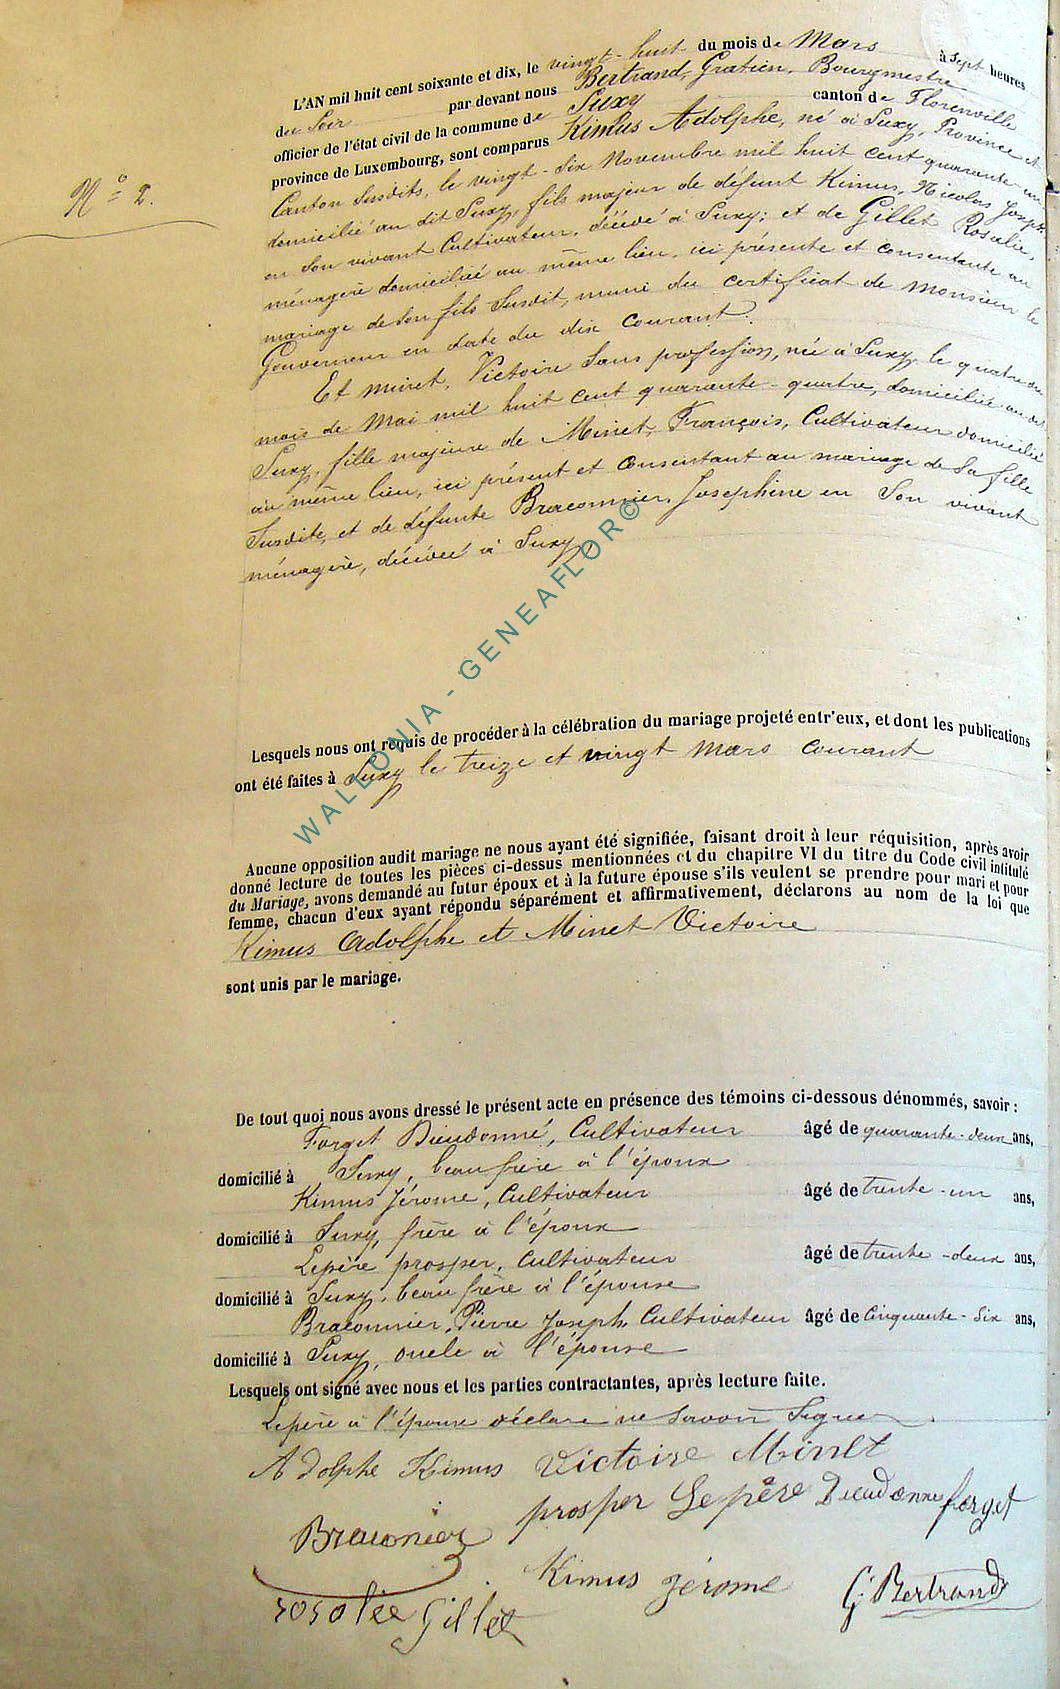 N° 2.
L'AN mil huit cent soixante et dix, le vingt-huit du mois de Mars à sept heures
du Soir par devant nous Bertrand, Gratien, Bourgmestre
officier de l'état civil de la commune de Suxy canton de Florenville
province de Luxembourg, sont comparus Kimus Adolphe, né à Suxy, Province et
Canton Susdits, le vingt-six Novembre mil huit cent quarante-un
domicilié au dit Suxy, fils majeur de défunt Kimus, Nicolas Joseph
en son vivant Cultivateur, décédé à Suxy; et de Gillet Rosalie,
ménagère domiciliée au même lieu, ici présente et consentante au
mariage de son fils Susdit, muni du certificat de Monsieur le
Gouverneur en date du dix courant.
Et Minet, Victoire Sans profession, née à Suxy, le quatre du
mois de Mai mil huit cent quarante-quatre, domiciliée au dit
Suxy, fille majeure de Minet, François, Cultivateur domicilié
au même lieu, ici présent et consentant au mariage de Sa fille
Susdite, et de défunte Braconnier, Josephine en Son vivant
ménagère, décédée à Suxy,
Lesquels nous ont requis de procéder à la célébration du mariage projeté entr'eux, et dont les publications
ont été faites à Suxy le treize et vingt Mars courant
Aucune opposition audit mariage ne nous ayant été signifiée, faisant droit à leur réquisition, après avoir
donné lecture de toutes les pièces ci-dessus mentionnées et du chapitre VI du titre du Code civil intitulé
du Mariage, avons demandé au futur époux et à la future épouse s'ils veulent se prendre pour mari et pour
femme, chacun d'eux ayant répondu séparément et affirmativement, déclarons au nom de la loi que
Kimus Adolphe et Minet Victoire
sont unis par le mariage.
De tout quoi nous avons dressé le présent acte en présence des témoins ci-dessous dénommés, savoir :
Forget Dieudonné, Cultivateur âgé de quarante-deux ans,
domicilié à Suxy, beau frère à l'époux
Kimus Jérome, Cultivateur âgé de trente-un ans,
domicilié à Suxy, frère à l'époux
Lepère prosper, Cultivateur âgé de trente-deux ans,
domicilié à Suxy, beau frère à l'épouse
Braconnier, Pierre Joseph, Cultivateur âgé de Cinquante-Six ans,
domicilié à Suxy, oncle à l'épouse
Lesquels ont signé avec nous et les parties contractantes, après lecture faite.
Le père à l'épouse déclare ne savoir Signer.
Adolphe Kimus Victoire Minet
prosper Lepère Dieudonné forget
Braconier
Kimus jérome G. Bertrand
rosalie Gillet
WALLONIA - GENEAFLOR©